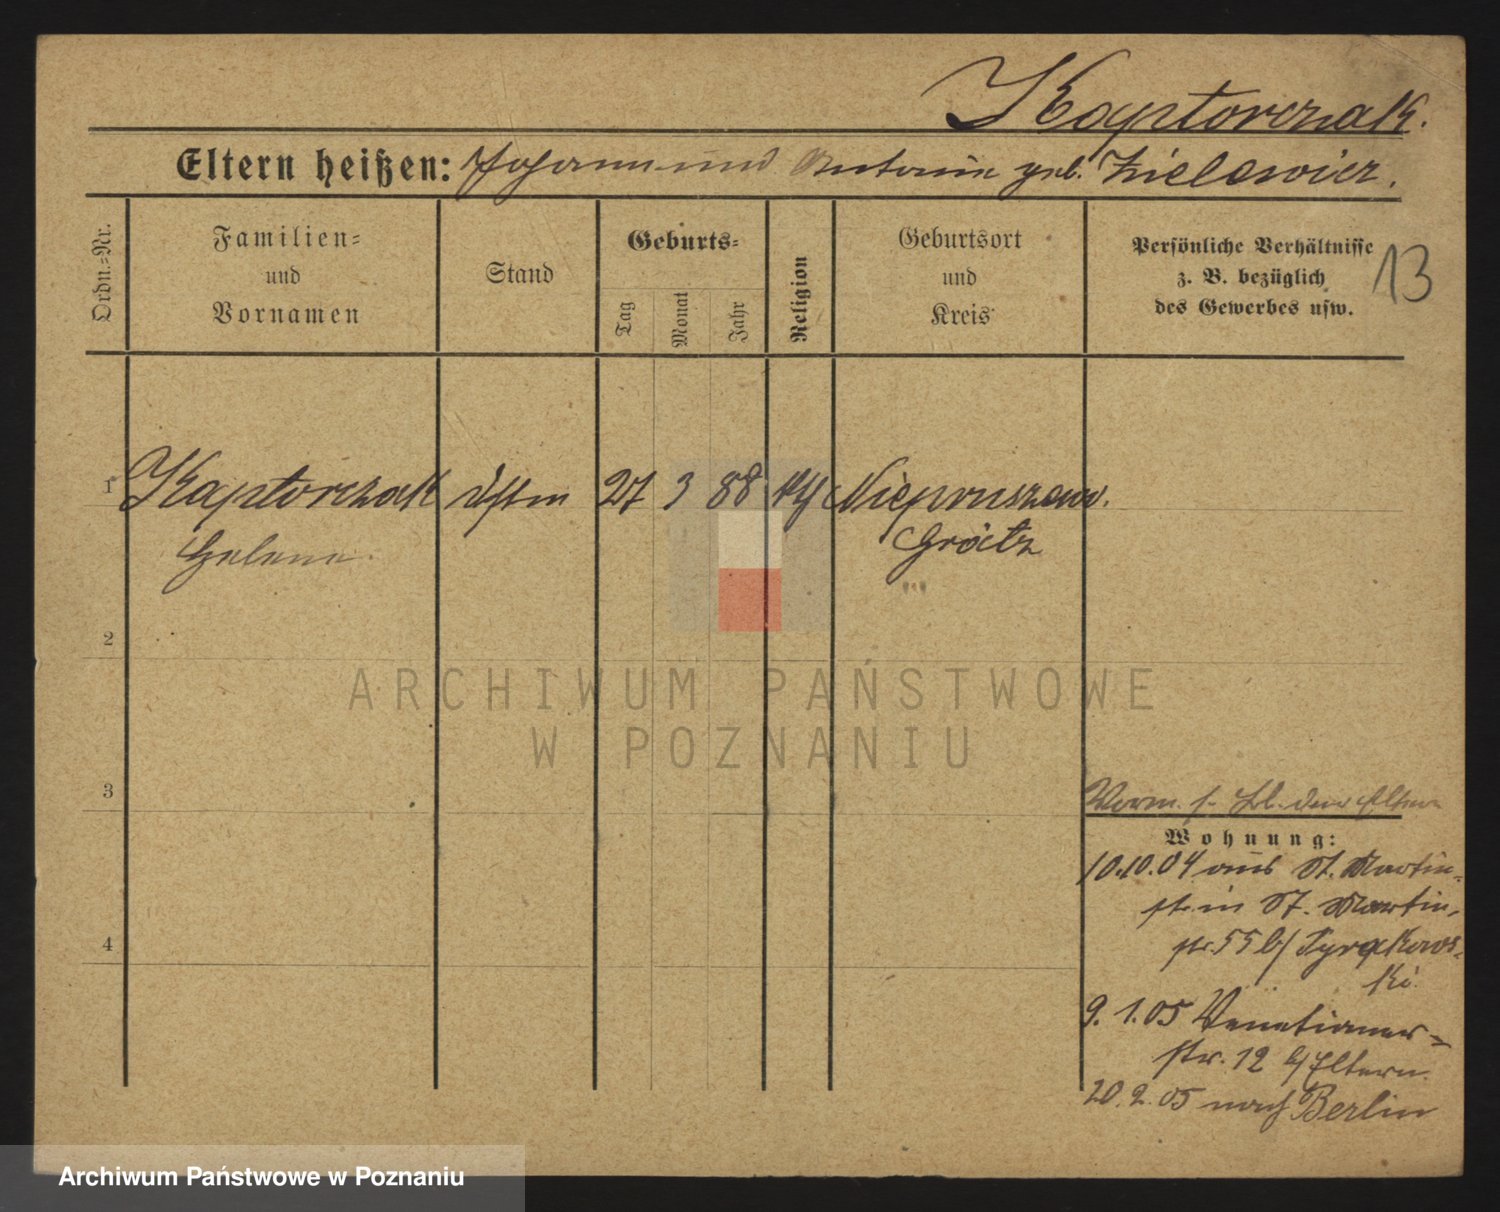 Kaptorczak.
Eltern heißen: Johann und Antonie geb. Zielewicz.
Ordn.=Nr.
Familien=
und
Vornamen
Stand
Geburts=
Tag
Monat
Jahr
Religion
Geburtsort
und
Kreis
Persönliche Verhältnisse
z. B. bezüglich
des Gewerbes usw.
13
1 Kaptorczak 27 3 88 kth Niepruszewo.
Helene. Grätz
2
3
4
Vorm. s. bl. der Eltern
Wohnung:
10.10.04 aus St. Martin-
str. in St. Martin-
str. 55 b/ Tyrakows-
ki.
9. 1. 05 Venetianer-
str. 12 b/ Eltern.
20. 2. 05 nach Berlin
ARCHIWUM PAŃSTWOWE
W POZNANIU
Archiwum Państwowe w Poznaniu